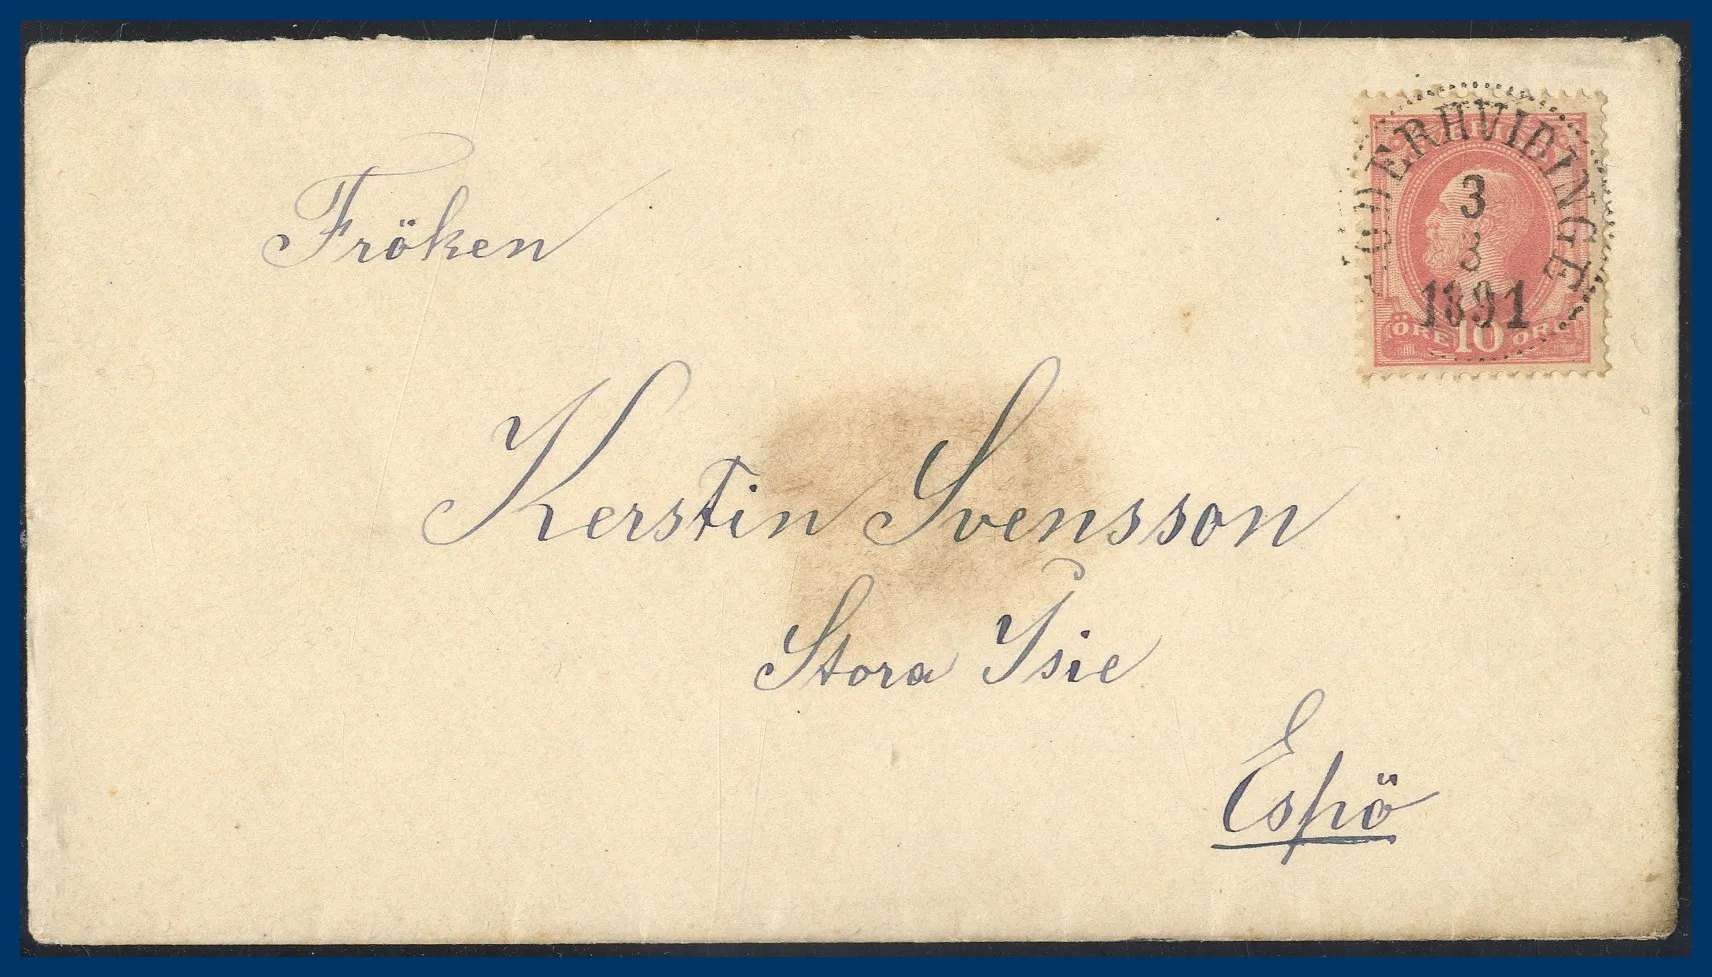 SÖDERHVIDINGE
3
3
1891
ÖRE 10 ÖRE
Fröken
Kerstin Svensson
Stora Isie
Espö